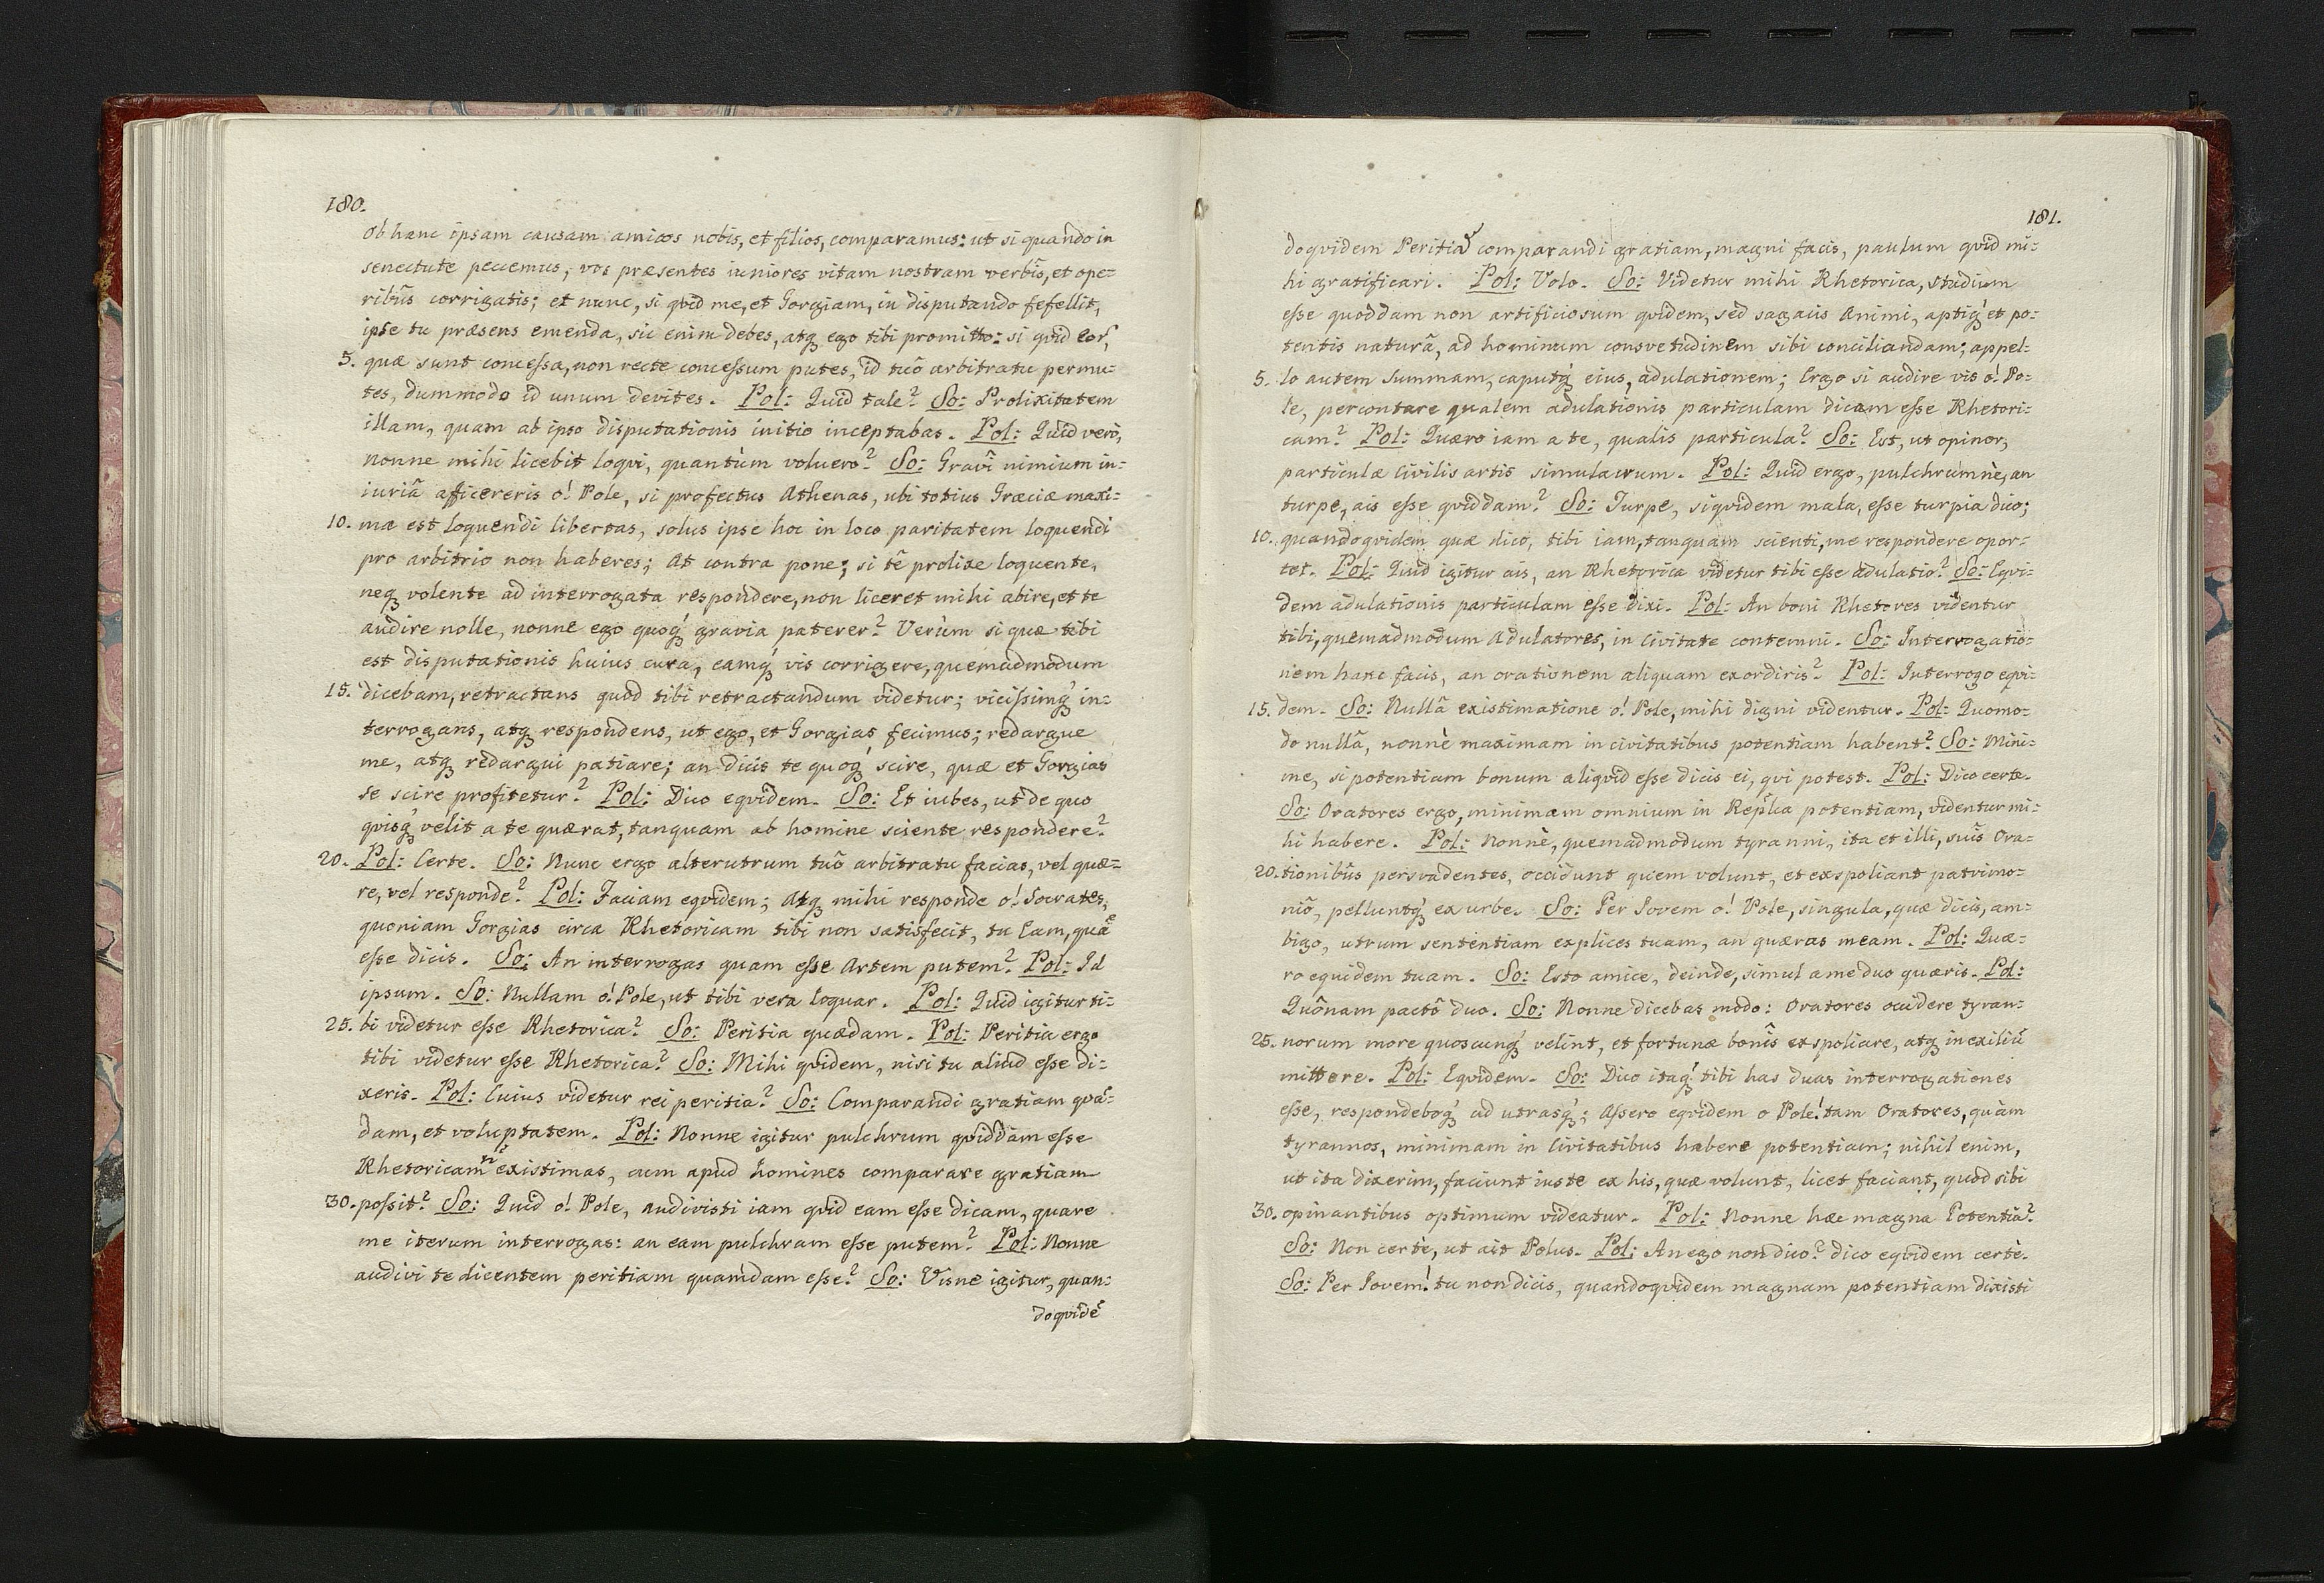 180.
ob hanc ipsam causam amicos nobis, et filios, comparamus: ut si quando in
senectute peccemus, vos præsentes iuniores vitam nostram verbîs, et ope=
ribûs corrigatis; et nunc, si qvid me, et Gorgiam, in disputando fefellit,
ipse tu præsens emenda, sic enim debes, atq₃ ego tibi promitto: si qvid eor,
5. quæ sunt concessa, non recte concessum putes, id tuô arbitratu permu=
tes, dummodo id unum devites. Pol: Quid tale? So: Prolixitatem
illam, quam ab ipso disputationis initio inceptabas. Pol: Quid verò,
nonne mihi licebit loqvi, quantùm voluero? So: Gravî nimium in=
iuriâ afficereris ô! Pole, si profectus Athenas, ubi totius Græciæ maxi=
10. ma est loquendi libertas, solus ipse hoc in loco paritatem loquendi
pro arbitrio non haberes; At contra pone; si tê prolixe loquente,
neq₃ volente ad interrogata respondere, non liceret mihi abire, et te
audire nolle, nonne ego quoq₃ gravia paterer? Verùm si quæ tibi
est disputationis huius cura, eamq₃ vis corrigere, quemadmodum
15. dicebam, retractans quod tibi retractandum videtur; vicissimq₃ in=
terrogans, atq₃ respondens, ut ego, et Gorgias fecimus; redargue
me, atq₃ redargui patiare; an dicis te quoq₃ scire, quæ et Gorgias
se scire profitetur? Pol: Dico eqvidem. So: Et iubes, ut de quo
qvisq₃ velit a te quærat, tanquam ab homine sciente respondere?
20. Pol: Certe. So: Nunc ergo alterutrum tuô arbitratu facias, vel quæ=
re, vel responde? Pol: Faciam eqvidem; Atq₃ mihi responde ô! Socrates,
quoniam Gorgias circa Rhetoricam tibi non satisfecit, tu Eam, quã
esse dicis. So: An interrogas quam esse Artem putem? Pol: Id
ipsum. So: Nullam ô! Pole, ut tibi vera loquar. Pol: Quid igitur ti=
25. bi videtur esse Rhetorica? So: Peritia quædam. Pol: Peritia ergo
tibi videtur esse Rhetorica? So: Mihi qvidem, nisi tu aliud esse di=
xeris. Pol: Cuius videtur rei peritia? So: Comparandi gratiam qvã=
dam, et voluptatem. Pol: Nonne igitur pulchrum qviddam esse
Rhetoricam existimas, cum apud homines comparare gratiam
30. possit? So: Quid ô! Pole, audivisti iam qvid eam esse dicam, quare
me iterum interrogas: an eam pulchram esse putem? Pol: Nonne
audivi te dicentem peritiam quamdam esse? So: Visne igitur, quan=
doqvidẽ
181.
doqvidem Peritia comparandi gratiam, magni facis, paulum qvid mi=
hi gratificari. Pol: Volo. So: Videtur mihi Rhetorica, studium
esse quoddam non artificiosum qvidem, sed sagacis Animi, aptiq₃ et po=
tentis naturâ, ad hominum consvetudinem sibi conciliandam; appel=
5. lo autem summam, caputq₃ eius, adulationem; Ergo si audire vis ô! Po=
le, percontare qualem adulationis particulam dicam esse Rhetori=
cam? Pol: Quæro iam a te, qualis particula? So: Est, ut opinor,
particulæ Civilis artis simulacrum. Pol: Quid ergo, pulchrumnè, an
turpe, ais esse qviddam? So: Turpe, siqvidem mala, esse turpia dico;
10. quandoqvidem quæ dico, tibi iam, tanquam scienti, me respondere opor=
tet. Pol: Quid igitur ais, an Rhetorica videtur tibi esse adulatio? So: Eqvi=
dem adulationis particulam esse dixi. Pol: An boni Rhetores videntur
tibi, quemadmodum Adulatores, in Civitate contemni. So: Interrogatio=
nem hanc facis, an orationem aliquam exordiris? Pol: Interrogo eqvi=
15. dem. So: Nullâ existimatione ô! Pole, mihi digni videntur. Pol: Quomo=
do nullâ, nonnè maximam in civitatibus potentiam habent? So: Mini=
me, si potentiam bonum aliqvid esse dicis ei, qvi potest. Pol: Dico certe.
So: Oratores ergo, minimam omnium in Replica potentiam, videntur mi=
hi habere. Pol: Nonnè, quemadmodum tyranni, ita et illi, suîs Ora=
20. tionibûs persvadentes, occidunt quem volunt, et exspoliant patrimo=
niô, pelluntq₃ ex urbe. So: Per Iovem ô! Pole, singula, quæ dicis, am=
bigo, utrum sententiam explices tuam, an quæras meam. Pol: Quæ=
ro equidem tuam. So: Esto amice, deinde, simul a me duo quæris. Pol:
Quônam pactô duo. So: Nonne dicebas modo: Oratores occidere tyran=
25. norum more quoscunq₃ velint, et fortunæ bonîs exspoliare, atq₃ in exiliũ
mittere. Pol: Eqvidem. So: Dico itaq₃ tibi has duas interrogationes
esse, respondeboq₃ ad utrasq₃; Assero eqvidem o Pole! tam Oratores, quàm
tyrannos, minimam in Civitatibus habere potentiam; nihil enim,
ut ita dixerim, faciunt iuste ex his, quæ volunt, licet faciant, quod sibi
30. opinantibus optimum videatur. Pol: Nonne hæc magna Potentia?
So: Non certè, ut ait Polus. Pol: An ego non dico? dico eqvidem certè.
So: Per Iovem! tu non dicis, quandoqvidem magnam potentiam dixisti